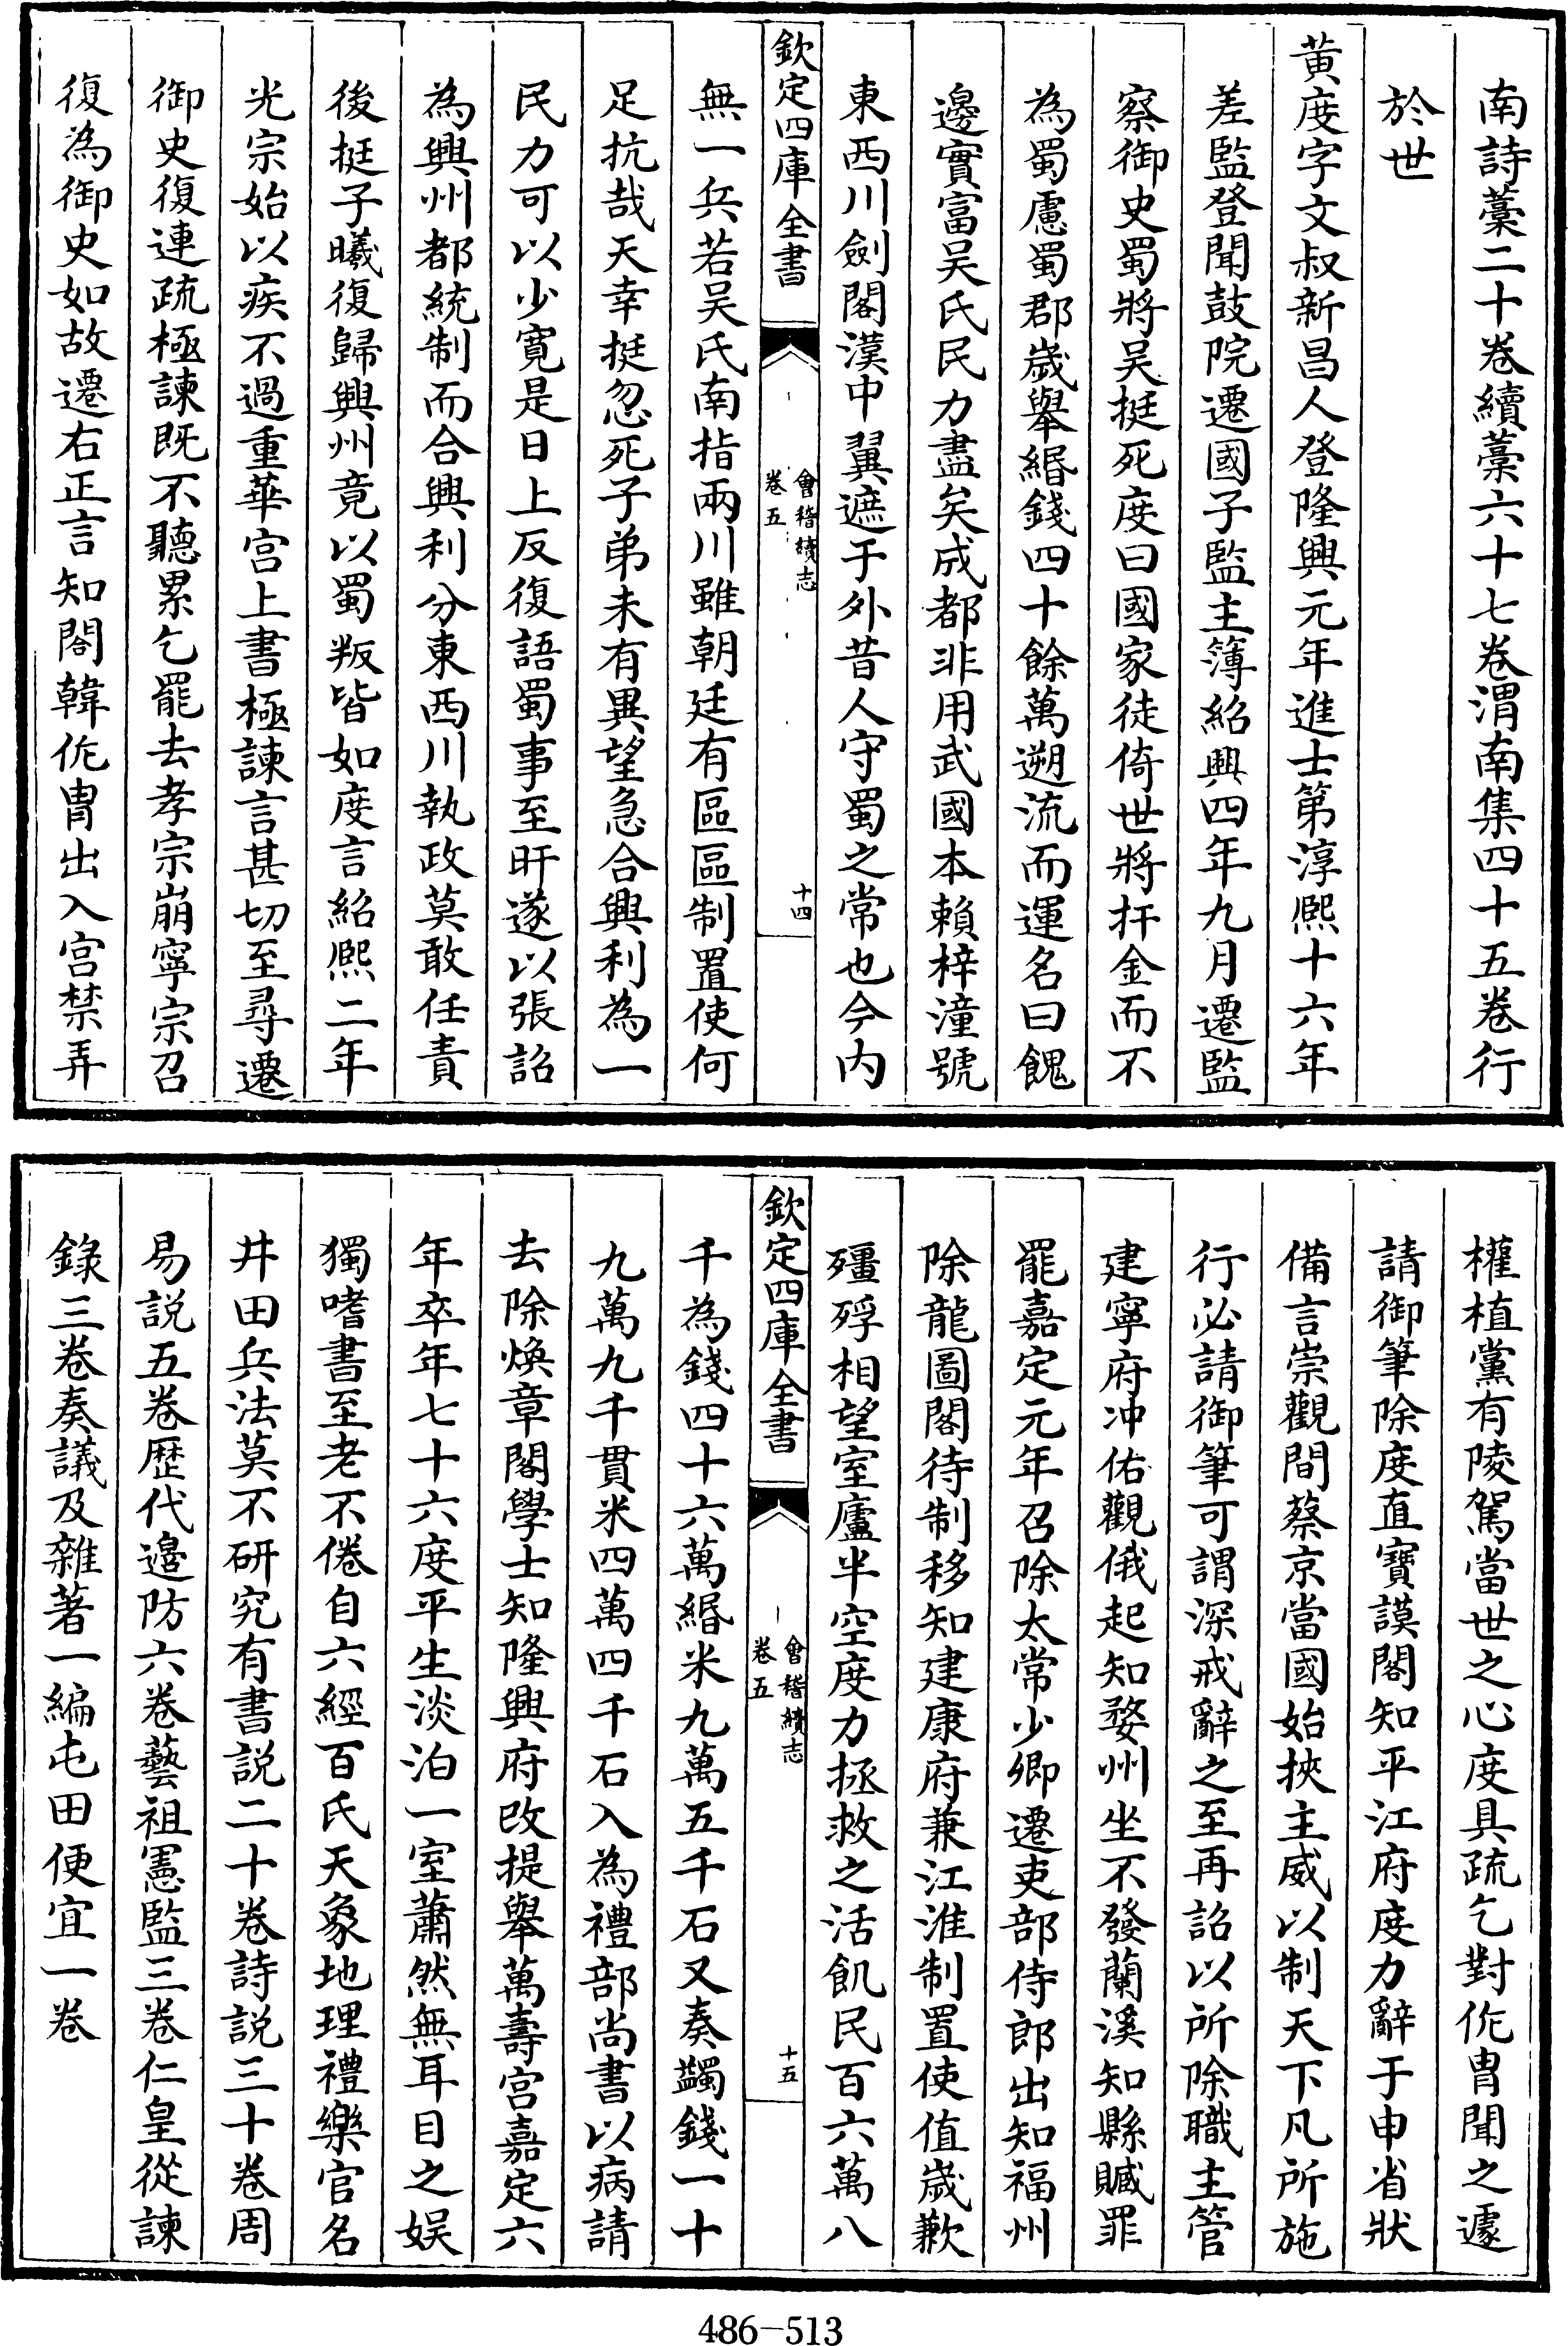 南詩藁二十卷續藁六十七卷渭南集四十五卷行
於世
黄度字文叔新昌人登隆興元年進士第淳熙十六年
差監登聞鼓院遷國子監主簿紹興四年九月遷監
察御史蜀將吴挺死度曰國家徒倚世將扞金而不
為蜀慮蜀郡歲舉緡錢四十餘萬遡流而運名曰餽
邊實富吴氏民力盡矣成都非用武國本賴梓潼號
東西川劍閣漢中翼遮于外昔人守蜀之常也今内
欽定四庫全書
會稽續志
卷五
十四
無一兵若吴氏南指兩川雖朝廷有區區制置使何
足抗哉天幸挺忽死子弟未有異望急合興利為一
民力可以少寛是日上反復語蜀事至旰遂以張詔
為興州都統制而合興利分東西川執政莫敢任責
後挺子曦復歸興州竟以蜀叛皆如度言紹熙二年
光宗始以疾不過重華宫上書極諫言甚切至尋遷
御史復連疏極諫既不聽累乞罷去孝宗崩寧宗召
復為御史如故遷右正言知閤韓侂胄出入宫禁弄
權植黨有陵駕當世之心度具疏乞對侂胄聞之遽
請御筆除度直寶謨閣知平江府度力辭于申省狀
備言崇觀間蔡京當國始挾主威以制天下凡所施
行必請御筆可謂深戒辭之至再詔以所除職主管
建寧府冲佑觀俄起知婺州坐不發蘭溪知縣贓罪
罷嘉定元年召除太常少卿遷吏部侍郎出知福州
除龍圖閣待制移知建康府兼江淮制置使值歲歉
殭殍相望室廬半空度力拯救之活飢民百六萬八
欽定四庫全書
會稽續志
卷五
十五
千為錢四十六萬緡米九萬五千石又奏蠲錢一十
九萬九千貫米四萬四千石入為禮部尚書以病請
去除煥章閣學士知隆興府改提舉萬壽宫嘉定六
年卒年七十六度平生淡泊一室蕭然無耳目之娱
獨嗜書至老不倦自六經百氏天象地理禮樂官名
井田兵法莫不研究有書説二十卷詩説三十卷周
易説五卷歴代邉防六卷藝祖憲監三卷仁皇從諫
錄三卷奏議及雜著一編屯田便宜一卷
486-513